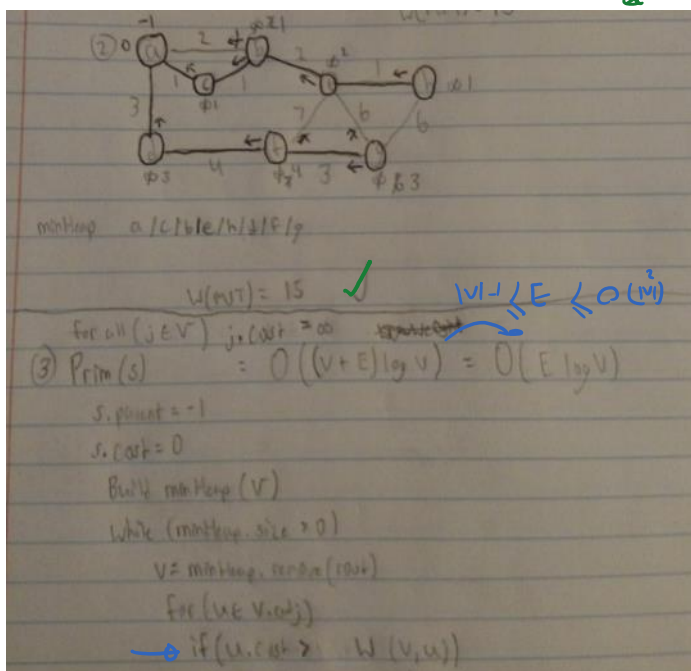 -1
② 0 a 2 b
1 1 2 1
3 7 6 6
4 3
minHeap a/c/b/e/h/d/f/g
W(MST) = 15 ✓
|V|-1 ≤ E ≤ O(|V|²)
for all (j ∈ V) j.cost = ∞
③ Prim(s) = O((V + E) log V) = O(E log V)
s.parent = -1
s.cost = 0
Build minHeap (V)
While (minHeap.size > 0)
V = minHeap.remove(root)
for (u ∈ V.adj)
→ if (u.cost > W(v,u))